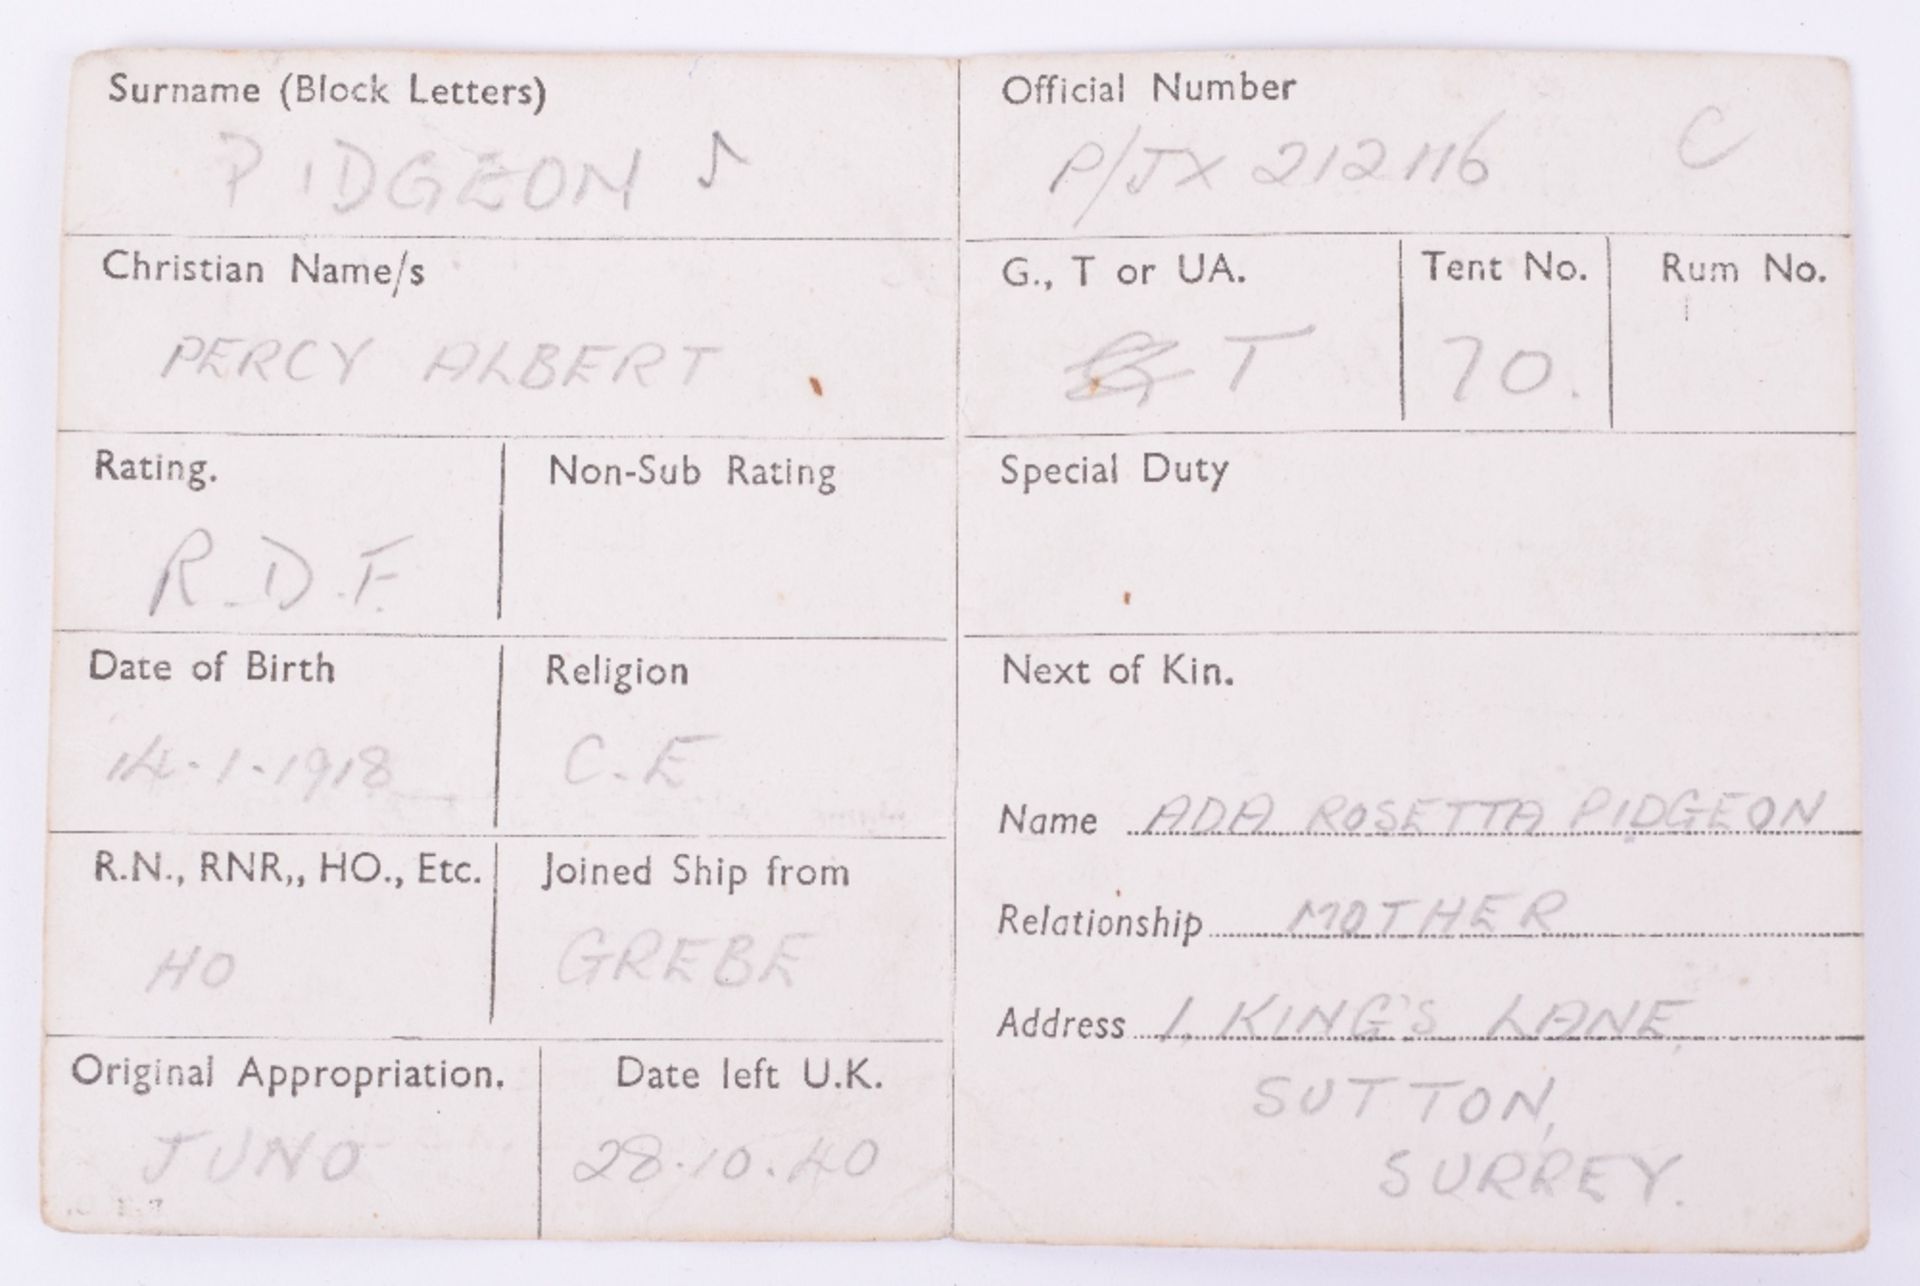 Surname (Block Letters)
PIDGEON
Christian Name/s
PERCY ALBERT
Rating.
R.D.F.
Non-Sub Rating
Date of Birth
14.1.1918
Religion
C.E
R.N., RNR,, HO., Etc.
HO
Joined Ship from
GREBE
Original Appropriation.
JUNO
Date left U.K.
28.10.40
Official Number
P/JX 212116 C
G., T or UA.
T
Tent No.
70.
Rum No.
Special Duty
Next of Kin.
Name ADA ROSETTA PIDGEON
Relationship MOTHER
Address 1, KING'S LANE,
SUTTON,
SURREY.